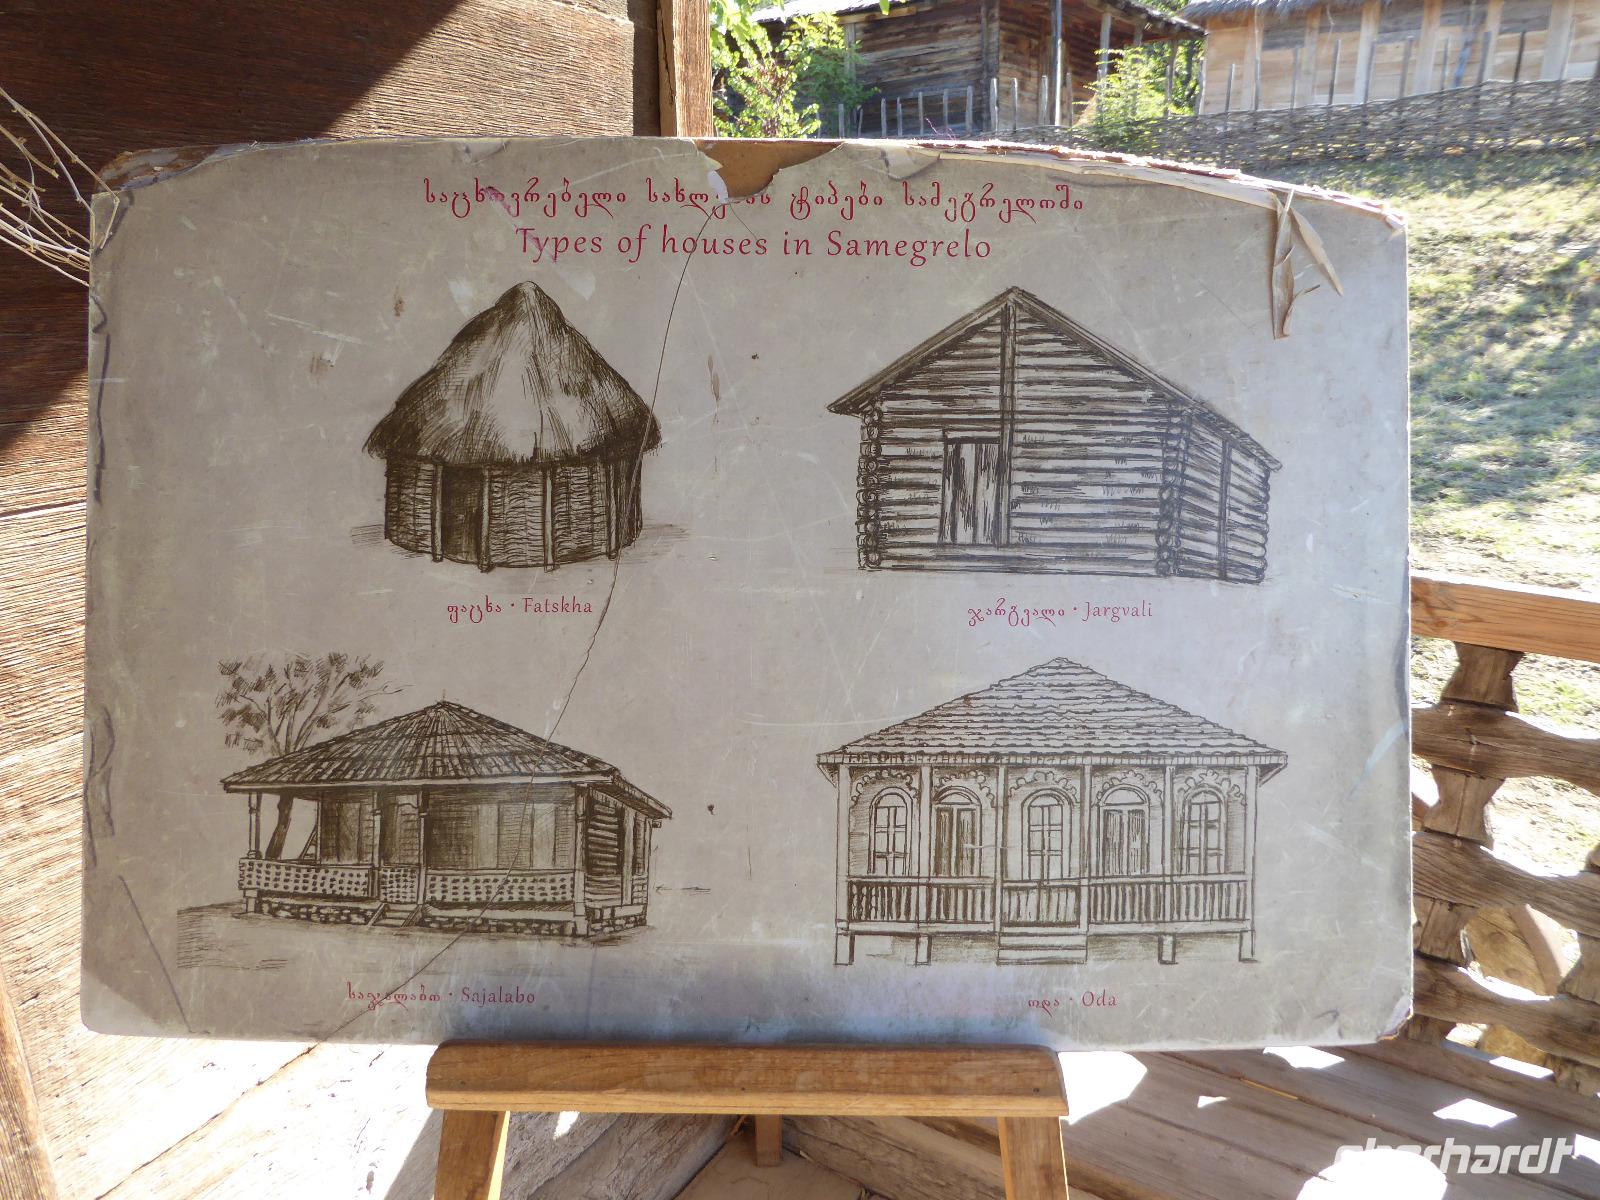 საცხოვრებელი ტიპები სამეგრელოში
Types of houses in Samegrelo
ფაცხა · Fatskha
ჯარგვალი · Jargvali
საჯალაბო · Sajalabo
ოდა · Oda
eberhardt